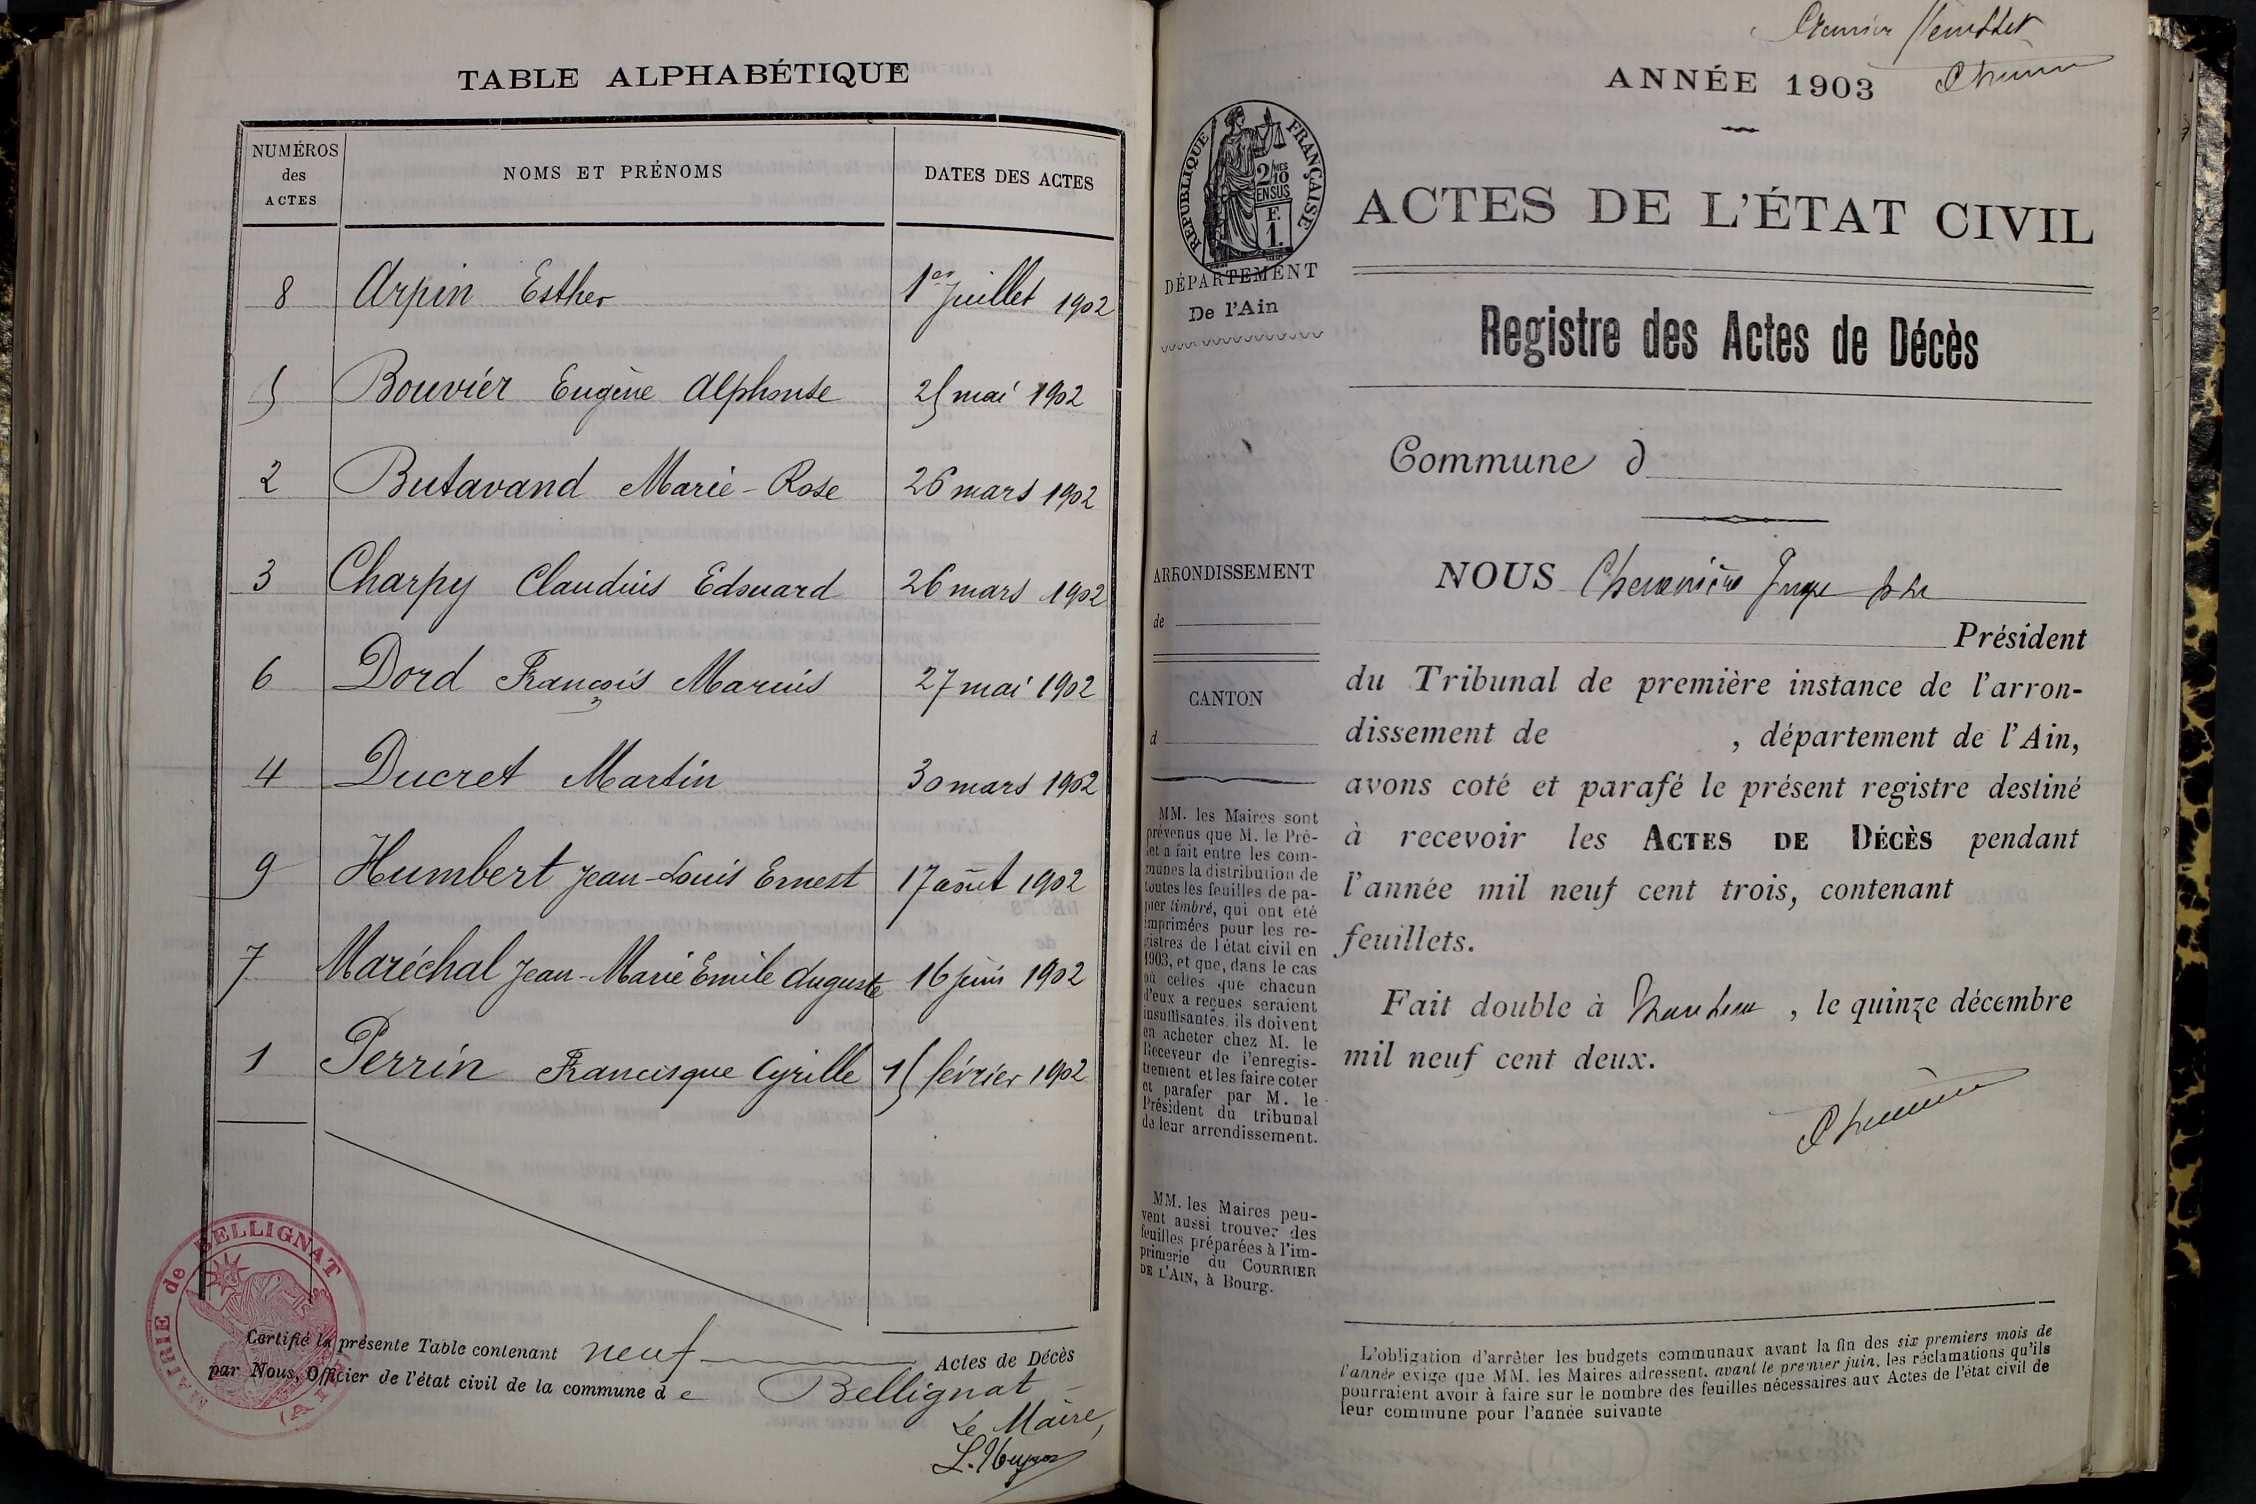 TABLE ALPHABÉTIQUE
NUMÉROS des ACTES
NOMS ET PRÉNOMS
DATES DES ACTES
8 Arpin Esther 1er juillet 1902
5 Bouvier Eugène Alphonse 25 mai 1902
2 Butavand Marie-Rose 26 mars 1902
3 Charpy Claudius Edouard 26 mars 1902
6 Dord François Marius 27 mai 1902
4 Ducret Martin 30 mars 1902
9 Humbert Jean-Louis Ernest 17 août 1902
7 Maréchal Jean-Marie Emile Auguste 16 juin 1902
1 Perrin Francisque Cyrille 15 février 1902
MAIRIE de BELLIGNAT
(AIN)
Certifié la présente Table contenant neuf Actes de Décès
par Nous, Officier de l'état civil de la commune de Bellignat
Le Maire,
Premier feuillet
ANNÉE 1903
RÉPUBLIQUE FRANÇAISE
2/10 EN SUS
F. 1.
DÉPARTEMENT
De l'Ain
ACTES DE L'ÉTAT CIVIL
Registre des Actes de Décès
Commune d
ARRONDISSEMENT
de
CANTON
d
MM. les Maires sont
prévenus que M. le Pré-
fet a fait entre les com-
munes la distribution de
toutes les feuilles de pa-
pier timbré, qui ont été
imprimées pour les re-
gistres de l'état civil en
1903, et que, dans le cas
où celles que chacun
d'eux a reçues seraient
insuffisantes, ils doivent
en acheter chez M. le
Receveur de l'enregis-
trement et les faire coter
et parafer par M. le
Président du tribunal
de leur arrondissement.
MM. les Maires peu-
vent aussi trouver des
feuilles préparées à l'im-
primerie du COURRIER
DE L'AIN, à Bourg.
NOUS
Président
du Tribunal de première instance de l'arron-
dissement de , département de l'Ain,
avons coté et parafé le présent registre destiné
à recevoir les ACTES DE DÉCÈS pendant
l'année mil neuf cent trois, contenant
feuillets.
Fait double à Nantua, le quinze décembre
mil neuf cent deux.
L'obligation d'arrêter les budgets communaux avant la fin des six premiers mois de
l'année exige que MM. les Maires adressent, avant le premier juin, les réclamations qu'ils
pourraient avoir à faire sur le nombre des feuilles nécessaires aux Actes de l'état civil de
leur commune pour l'année suivante